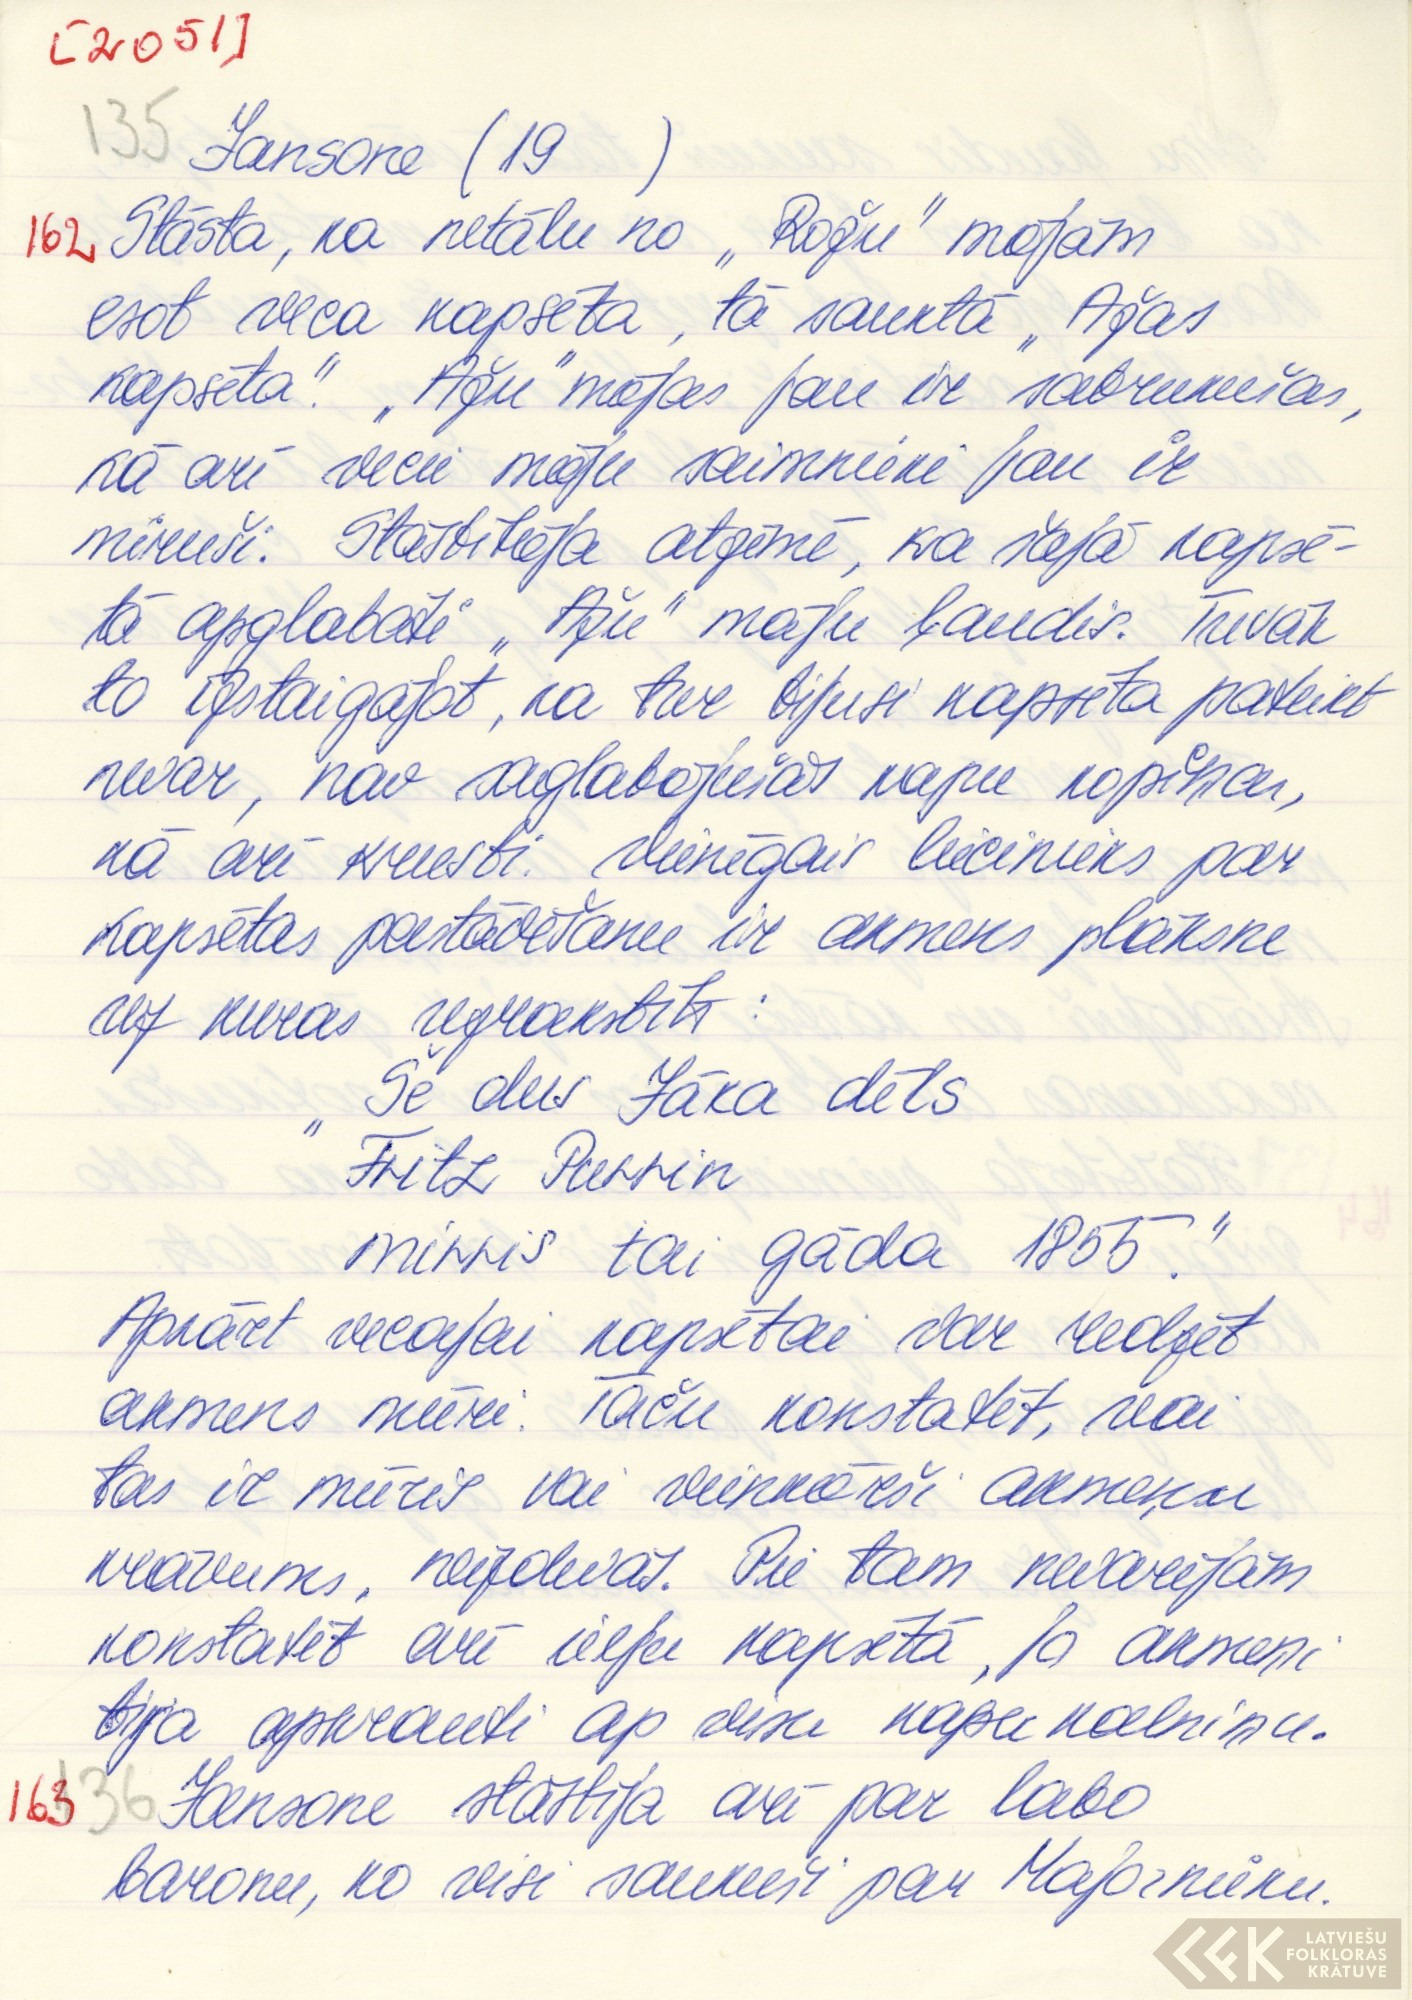 [2051]
135 Jansone (19 )
162 Stāsta, ka netālu no „Rožu” mājām
esot veca kapsēta, tā sauktā „Ažas
kapsēta”. „Ažu” mājas jau ir sabrukušas,
kā arī vecie māju saimnieki jau ir
miruši. Stāstītāja atzīmē, ka šajā kapsē-
tā apglabāti „Ažu” māju ļaudis. Tuvāk
to izstaigājot, ka tur bijusi kapsēta pateikt
nevar, nav saglabājušās kapu kopiņas,
kā arī krusti. Vienīgais liecinieks par
kapsētas pastāvēšanu ir akmens plāksne
uz kuras uzrakstīts:
„Še dus Jāka dēls
Fritz Purrin
mirris tai gāda 1855.”
Apkārt vecajai kapsētai var redzēt
akmens mūri. Taču konstatēt, vai
tas ir mūris vai vienkārši akmeņu
krāvums, neizdevās. Pie tam nevarējām
konstatēt arī ieeju kapsētā, jo akmeņi
bija apkrauti ap visu kapu kalniņu.
163 136 Jansone stāstīja arī par labo
baronu, ko visi saukuši par Majornieku.
LATVIEŠU
FOLKLORAS
KRĀTUVE